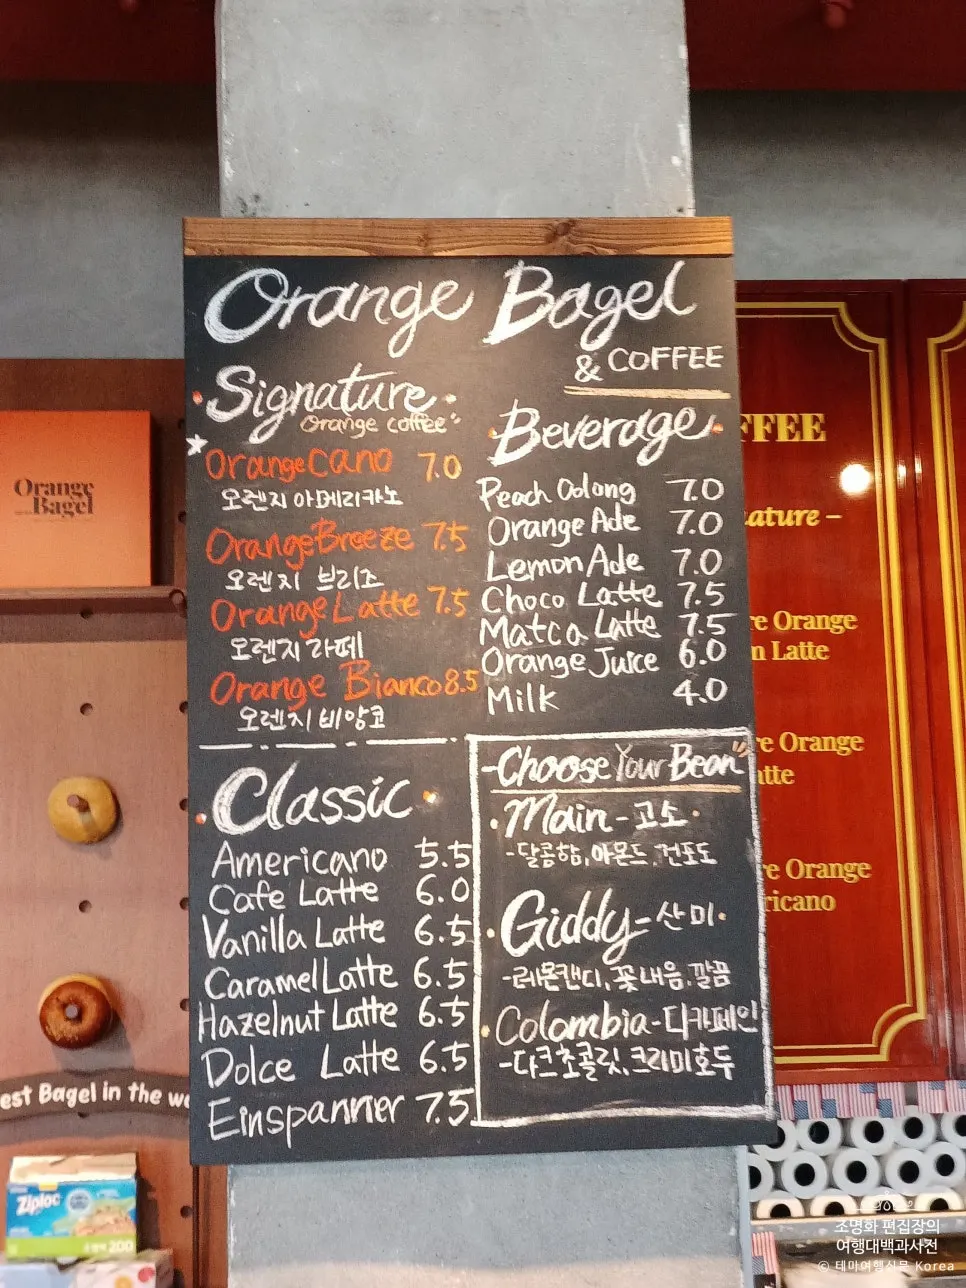 Orange Bagel
& COFFEE
Signature
Orange coffee
OrangeCano 7.0
오렌지 아메리카노
OrangeBreeze 7.5
오렌지 브리즈
Orange Latte 7.5
오렌지 라떼
Orange Bianco 8.5
오렌지 비앙코
Beverage
Peach Oolong 7.0
Orange Ade 7.0
Lemon Ade 7.0
Choco Latte 7.5
Matca Latte 7.5
Orange Juice 6.0
Milk 4.0
Classic
Americano 5.5
Cafe Latte 6.0
Vanilla Latte 6.5
Caramel Latte 6.5
Hazelnut Latte 6.5
Dolce Latte 6.5
Einspanner 7.5
-Choose Your Bean
·Main - 고소·
-달콤함, 아몬드, 건포도
·Giddy - 산미·
-레몬캔디, 꽃내음, 깔끔
·Colombia - 디카페인
-다크초콜릿, 크리미호두
Orange
Bagel
FFEE
ature –
re Orange
n Latte
re Orange
atte
re Orange
ricano
est Bagel in the wo
Ziploc
200
조명화 편집장의
여행대백과사전
© 테마여행신문 Korea